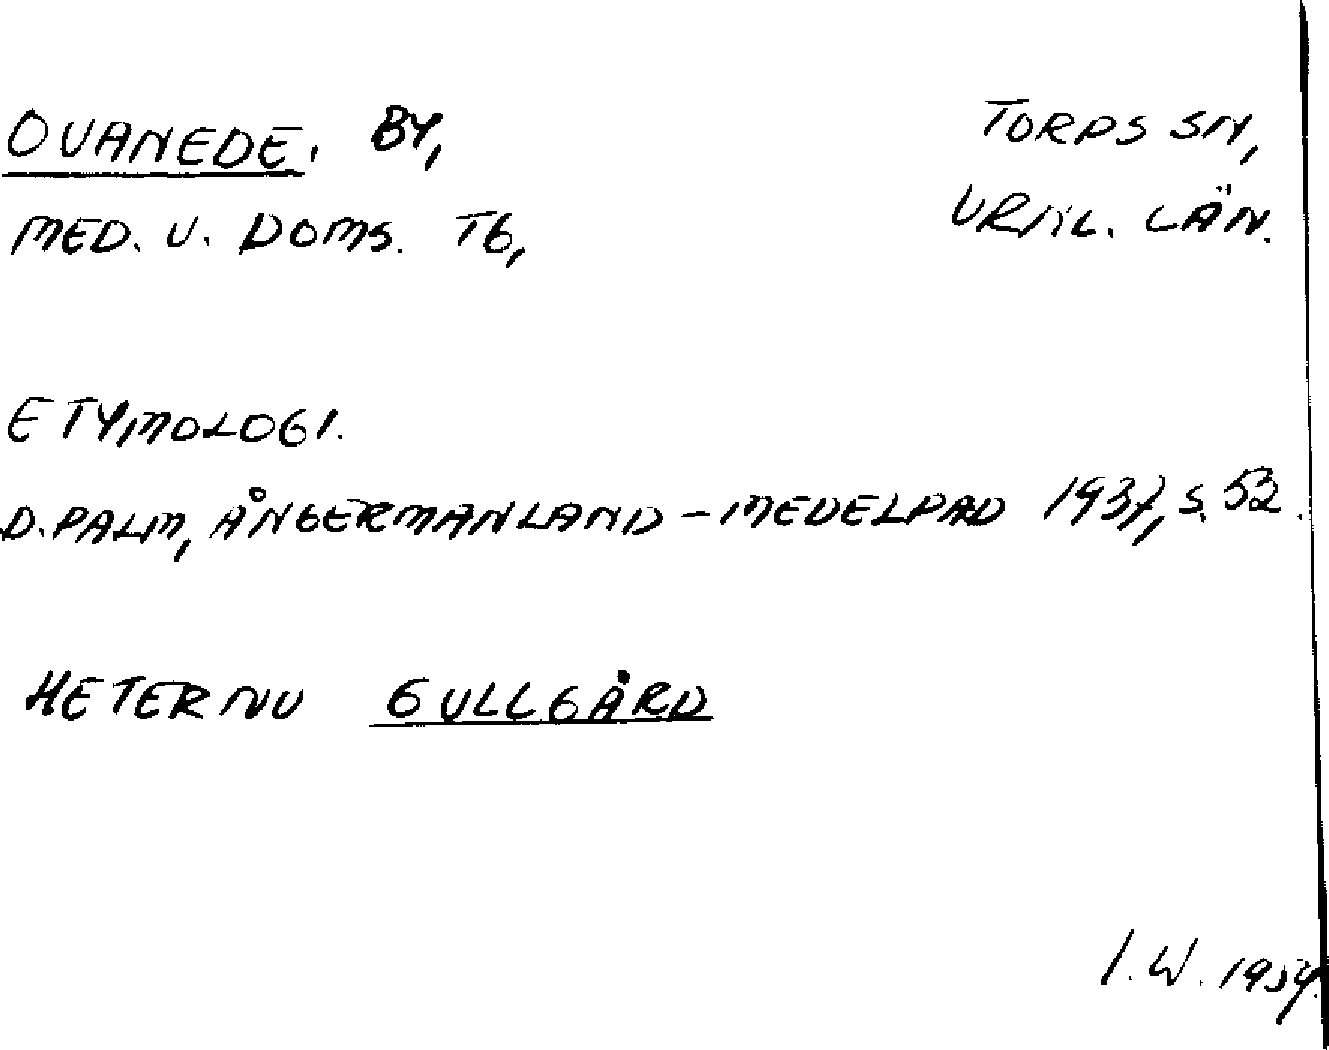 OVANEDE. BY, TORPS SN,
MED. V. DOMS. TG, VRNL. LÄN.
ETYMOLOGI.
D. PALM, ÅNGERMANLAND - MEDELPAD 1937, S. 52.
HETER NU GULLGÅRD
I. W. 1954.